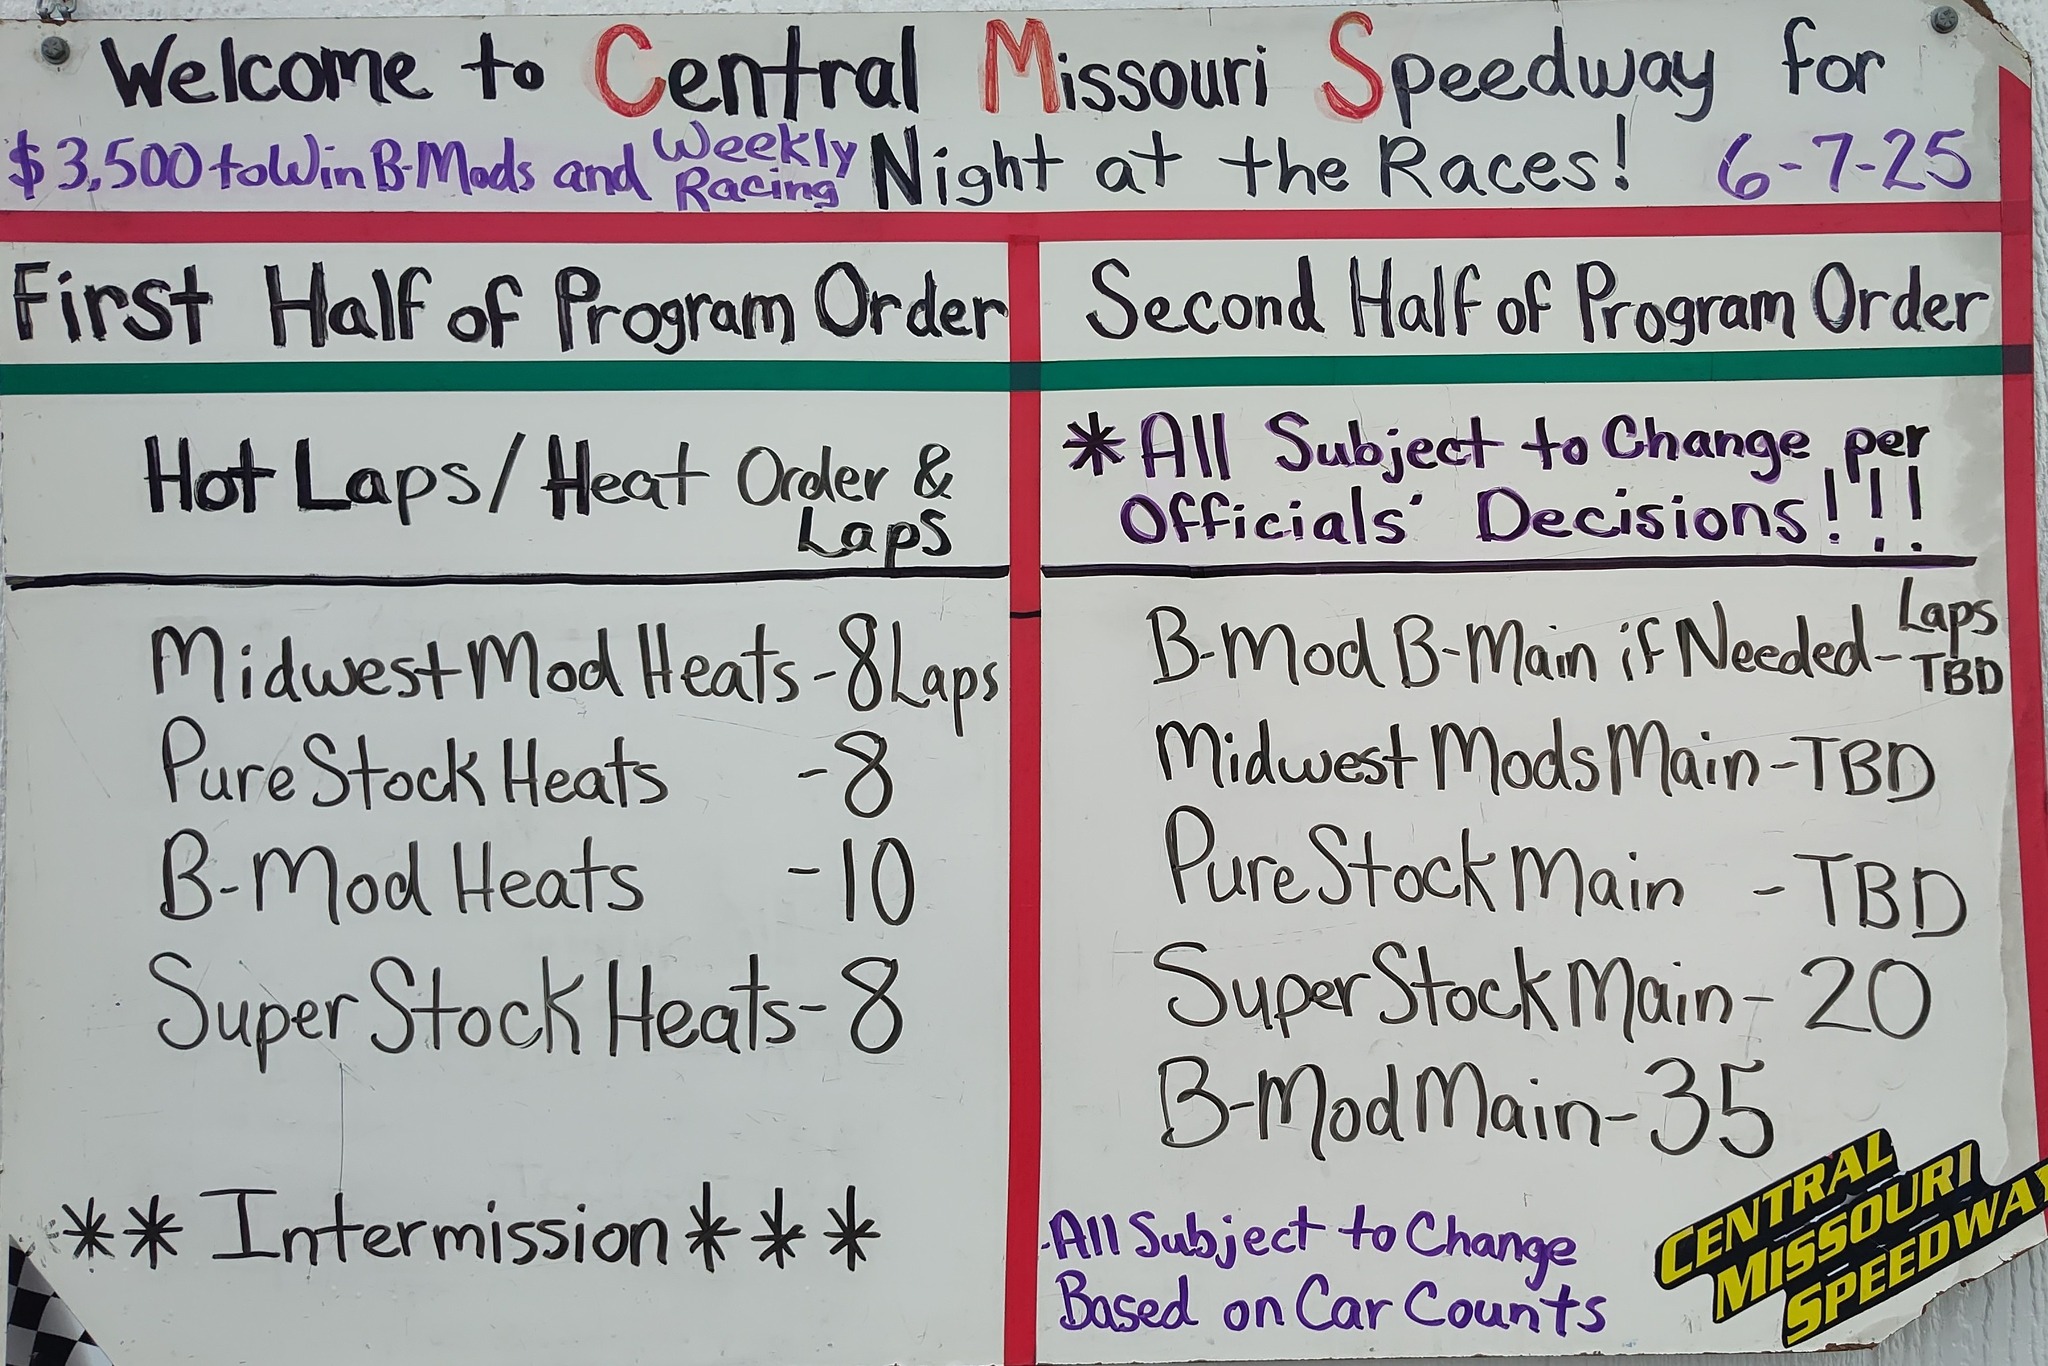 Welcome to Central Missouri Speedway for
$3,500 to Win B-Mods and Weekly Racing Night at the Races! 6-7-25
First Half of Program Order
Hot Laps/Heat Order &
Laps
Midwest Mod Heats-8 Laps
Pure Stock Heats -8
B-Mod Heats -10
Super Stock Heats-8
** Intermission ***
Second Half of Program Order
*All Subject to Change per
Officials' Decisions!!!
B-Mod B-Main if Needed- Laps TBD
Midwest Mods Main-TBD
Pure Stock Main -TBD
Super Stock Main- 20
B-Mod Main-35
All Subject to Change
Based on Car Counts
CENTRAL
MISSOURI
SPEEDWAY